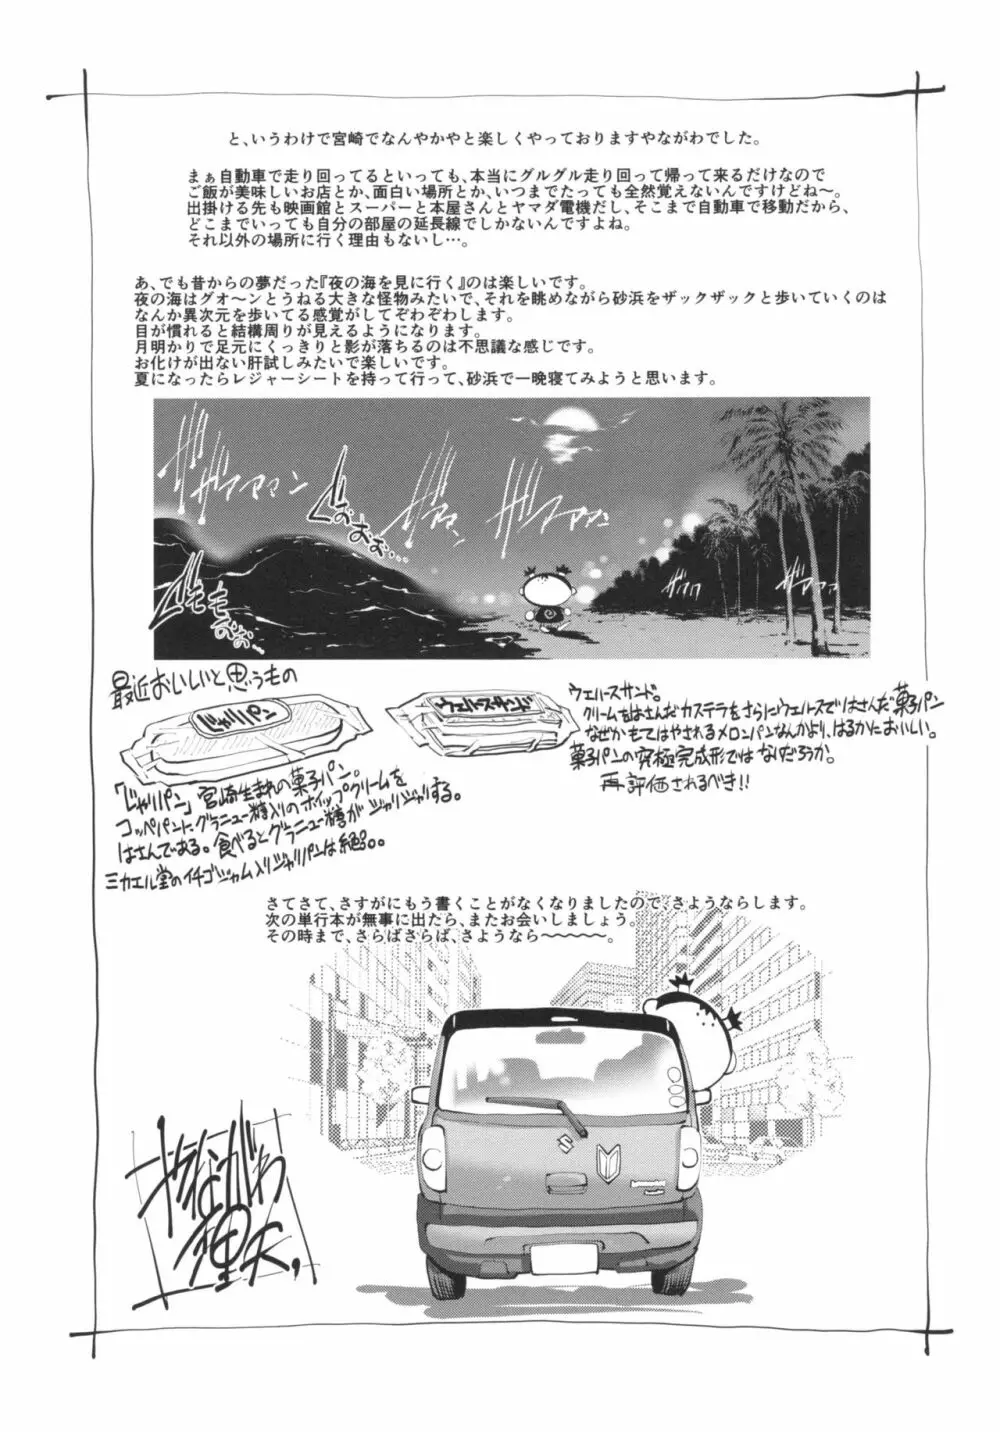 と、いうわけで宮崎でなんやかやと楽しくやっておりますやながわでした。
まぁ自動車で走り回ってるといっても、本当にグルグル走り回って帰って来るだけなので
ご飯が美味しいお店とか、面白い場所とか、いつまでたっても全然覚えないんですけどね〜。
出掛ける先も映画館とスーパーと本屋さんとヤマダ電機だし、そこまで自動車で移動だから、
どこまでいっても自分の部屋の延長線でしかないんですよね。
それ以外の場所に行く理由もないし…。
あ、でも昔からの夢だった『夜の海を見に行く』のは楽しいです。
夜の海はグオ〜ンとうねる大きな怪物みたいで、それを眺めながら砂浜をザックザックと歩いていくのは
なんか異次元を歩いてる感覚がしてぞわぞわします。
目が慣れると結構周りが見えるようになります。
月明かりで足元にくっきりと影が落ちるのは不思議な感じです。
お化けが出ない肝試しみたいで楽しいです。
夏になったらレジャーシートを持って行って、砂浜で一晩寝てみようと思います。
最近おいしいと思うもの
じゃりパン
「じゃりパン」宮崎生まれの菓子パン。
コッペパンにグラニュー糖入りのホイップクリームを
はさんである。食べるとグラニュー糖がジャリジャリする。
ミカエル堂のイチゴジャム入りジャリパンは絶品。
ウエハースサンド
ウエハースサンド。
クリームをはさんだカステラをさらにウエハースではさんだ菓子パン
なぜかもてはやされるメロンパンなんかより、はるかにおいしい。
菓子パンの究極完成形ではないだろうか。
再評価されるべき!!
さてさて、さすがにもう書くことがなくなりましたので、さようならします。
次の単行本が無事に出たら、またお会いしましょう。
その時まで、さらばさらば、さようなら〜〜〜〜〜。
やながわ
理央